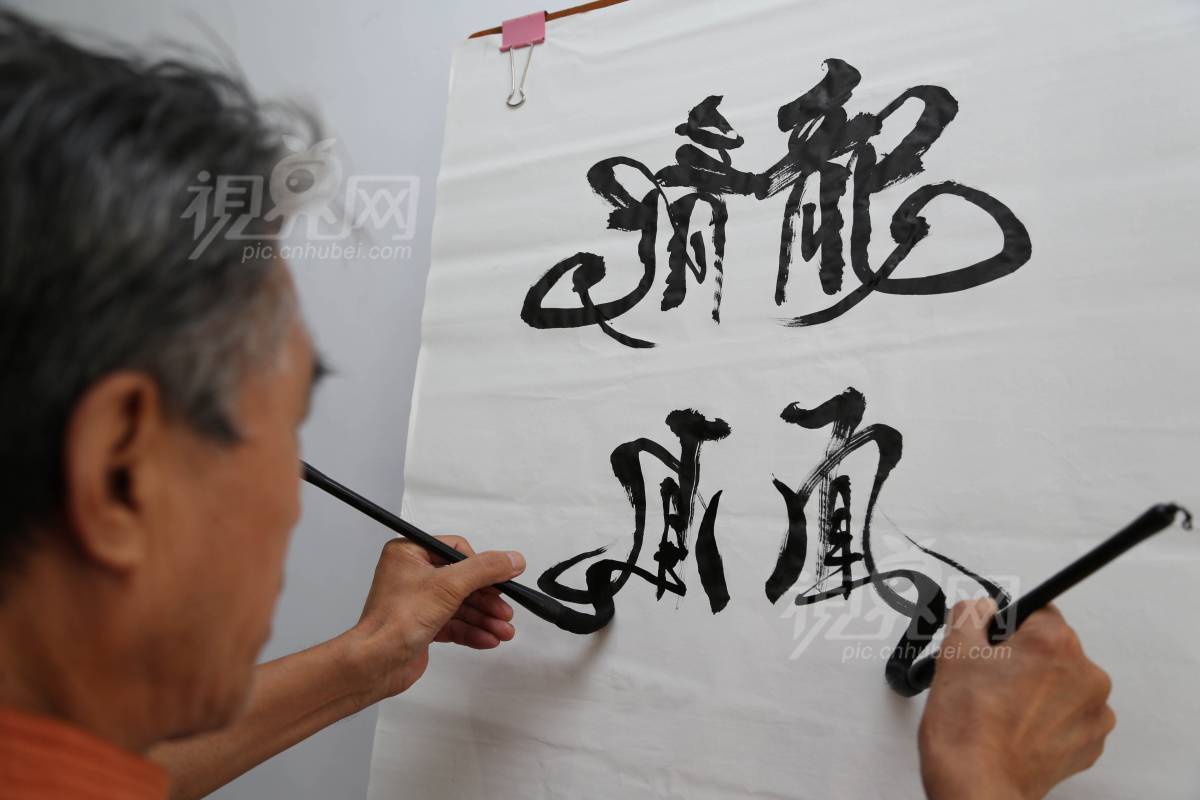 视界网
pic.cnhubei.com
龍 龍
鳳 鳳
视界网
pic.cnhubei.com